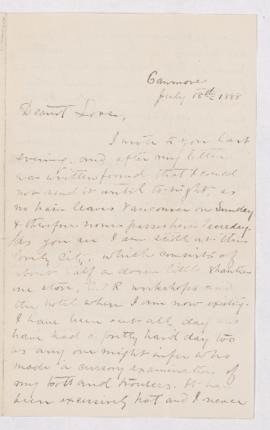 Canmore
July 18th 1888
Dearest Love,
I wrote to you last
evening, and after my letter
was written found that I could
not send it until to-night, as
no train leaves Vancouver on Sunday
& therefore none passes here Tuesday.
As you see I am still at this
lovely City, which consists of
about half a dozen little shanties
one store, C.P.R workshops and
the hotel where I am now existing.
I have been out all day and
have had a pretty hard day too
as any one might infer who
made a cursory examination of
my boots and trousers. It has
been excessively hot and I never